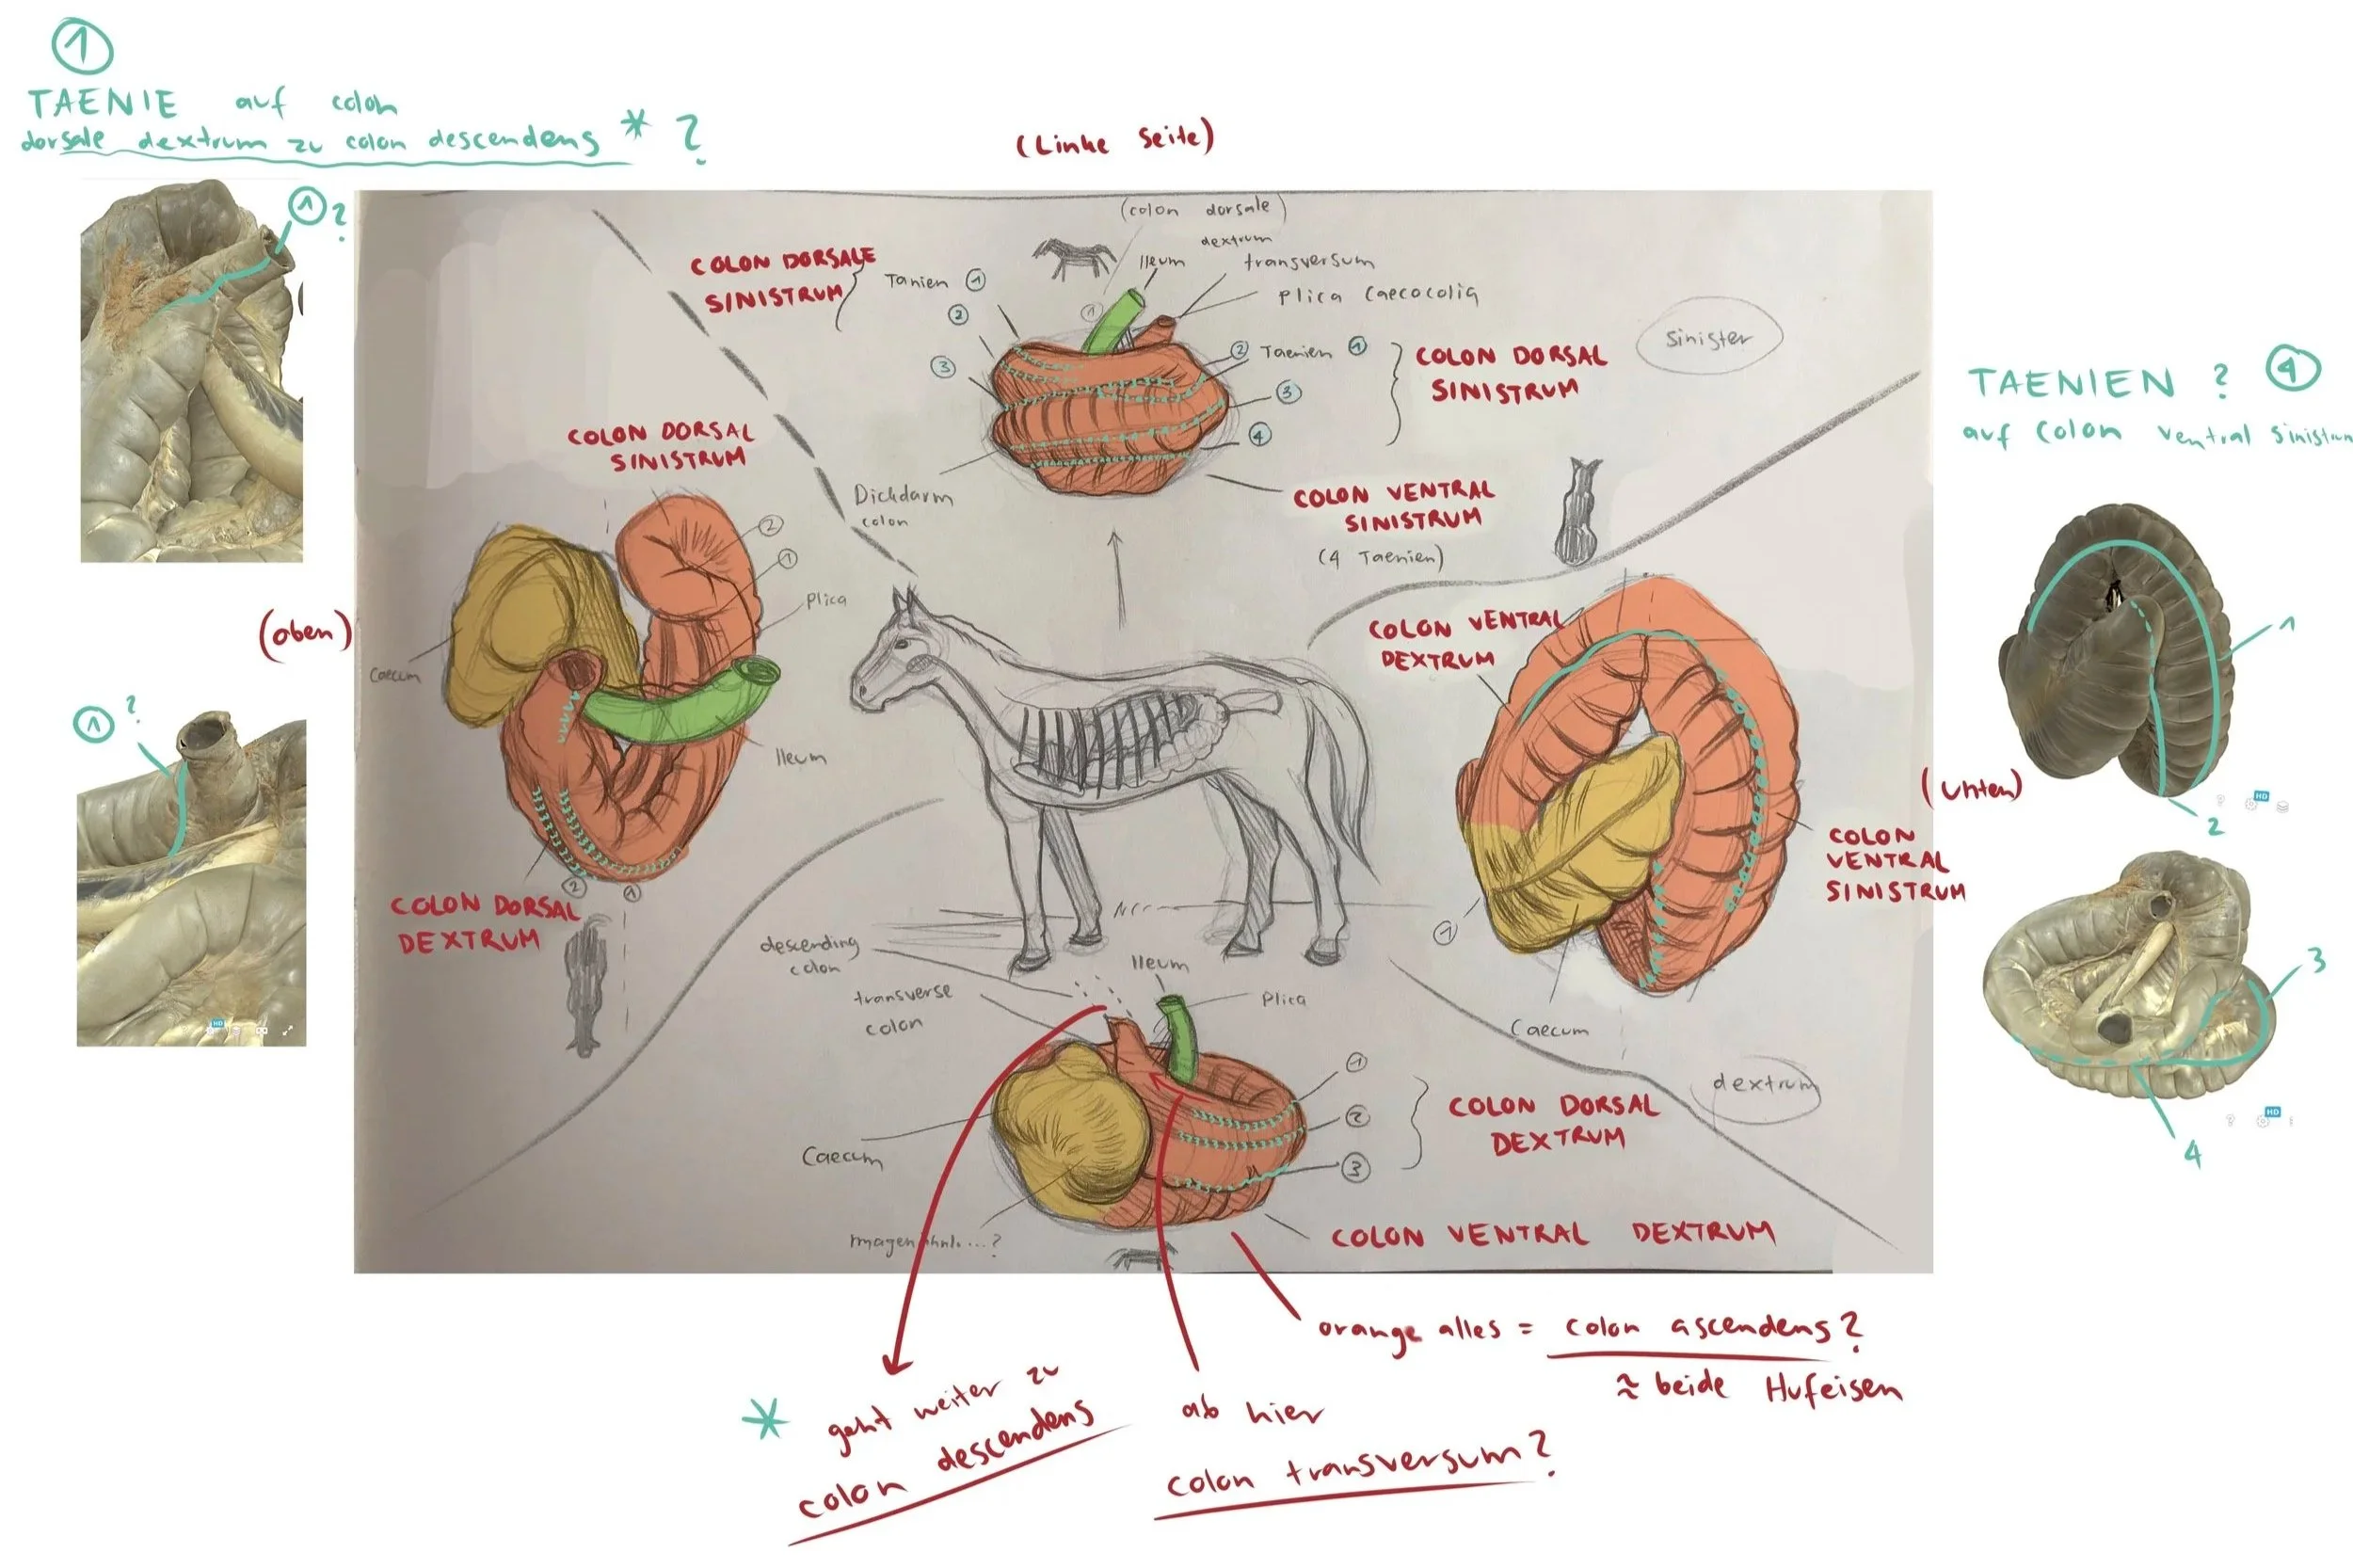 1
TAENIE auf colon
dorsale dextrum zu colon descendens * ?
1 ?
1 ?
(Linke Seite)
(oben)
(colon dorsale)
dextrum
COLON DORSALE
SINISTRUM
Tänien 1
2
3
1
Ileum
transversum
Plica Caecocolia
2 Taenien 1
3
4
COLON DORSAL
SINISTRUM
sinister
Dickdarm
colon
COLON VENTRAL
SINISTRUM
(4 Taenien)
COLON DORSAL
SINISTRUM
2
1
Plica
Caecum
Ileum
2
1
COLON DORSAL
DEXTRUM
COLON VENTRAL
DEXTRUM
COLON
VENTRAL
SINISTRUM
1
Caecum
dextrum
descending
colon
transverse
colon
Ileum
Plica
1
2
3
COLON DORSAL
DEXTRUM
Caecum
COLON VENTRAL DEXTRUM
TAENIEN ? 4
auf Colon ventral sinistrum
1
HD
2
(unten)
3
HD
4
HD
* geht weiter zu
colon descendens
ab hier
colon transversum?
orange alles = colon ascendens?
≈ beide Hufeisen